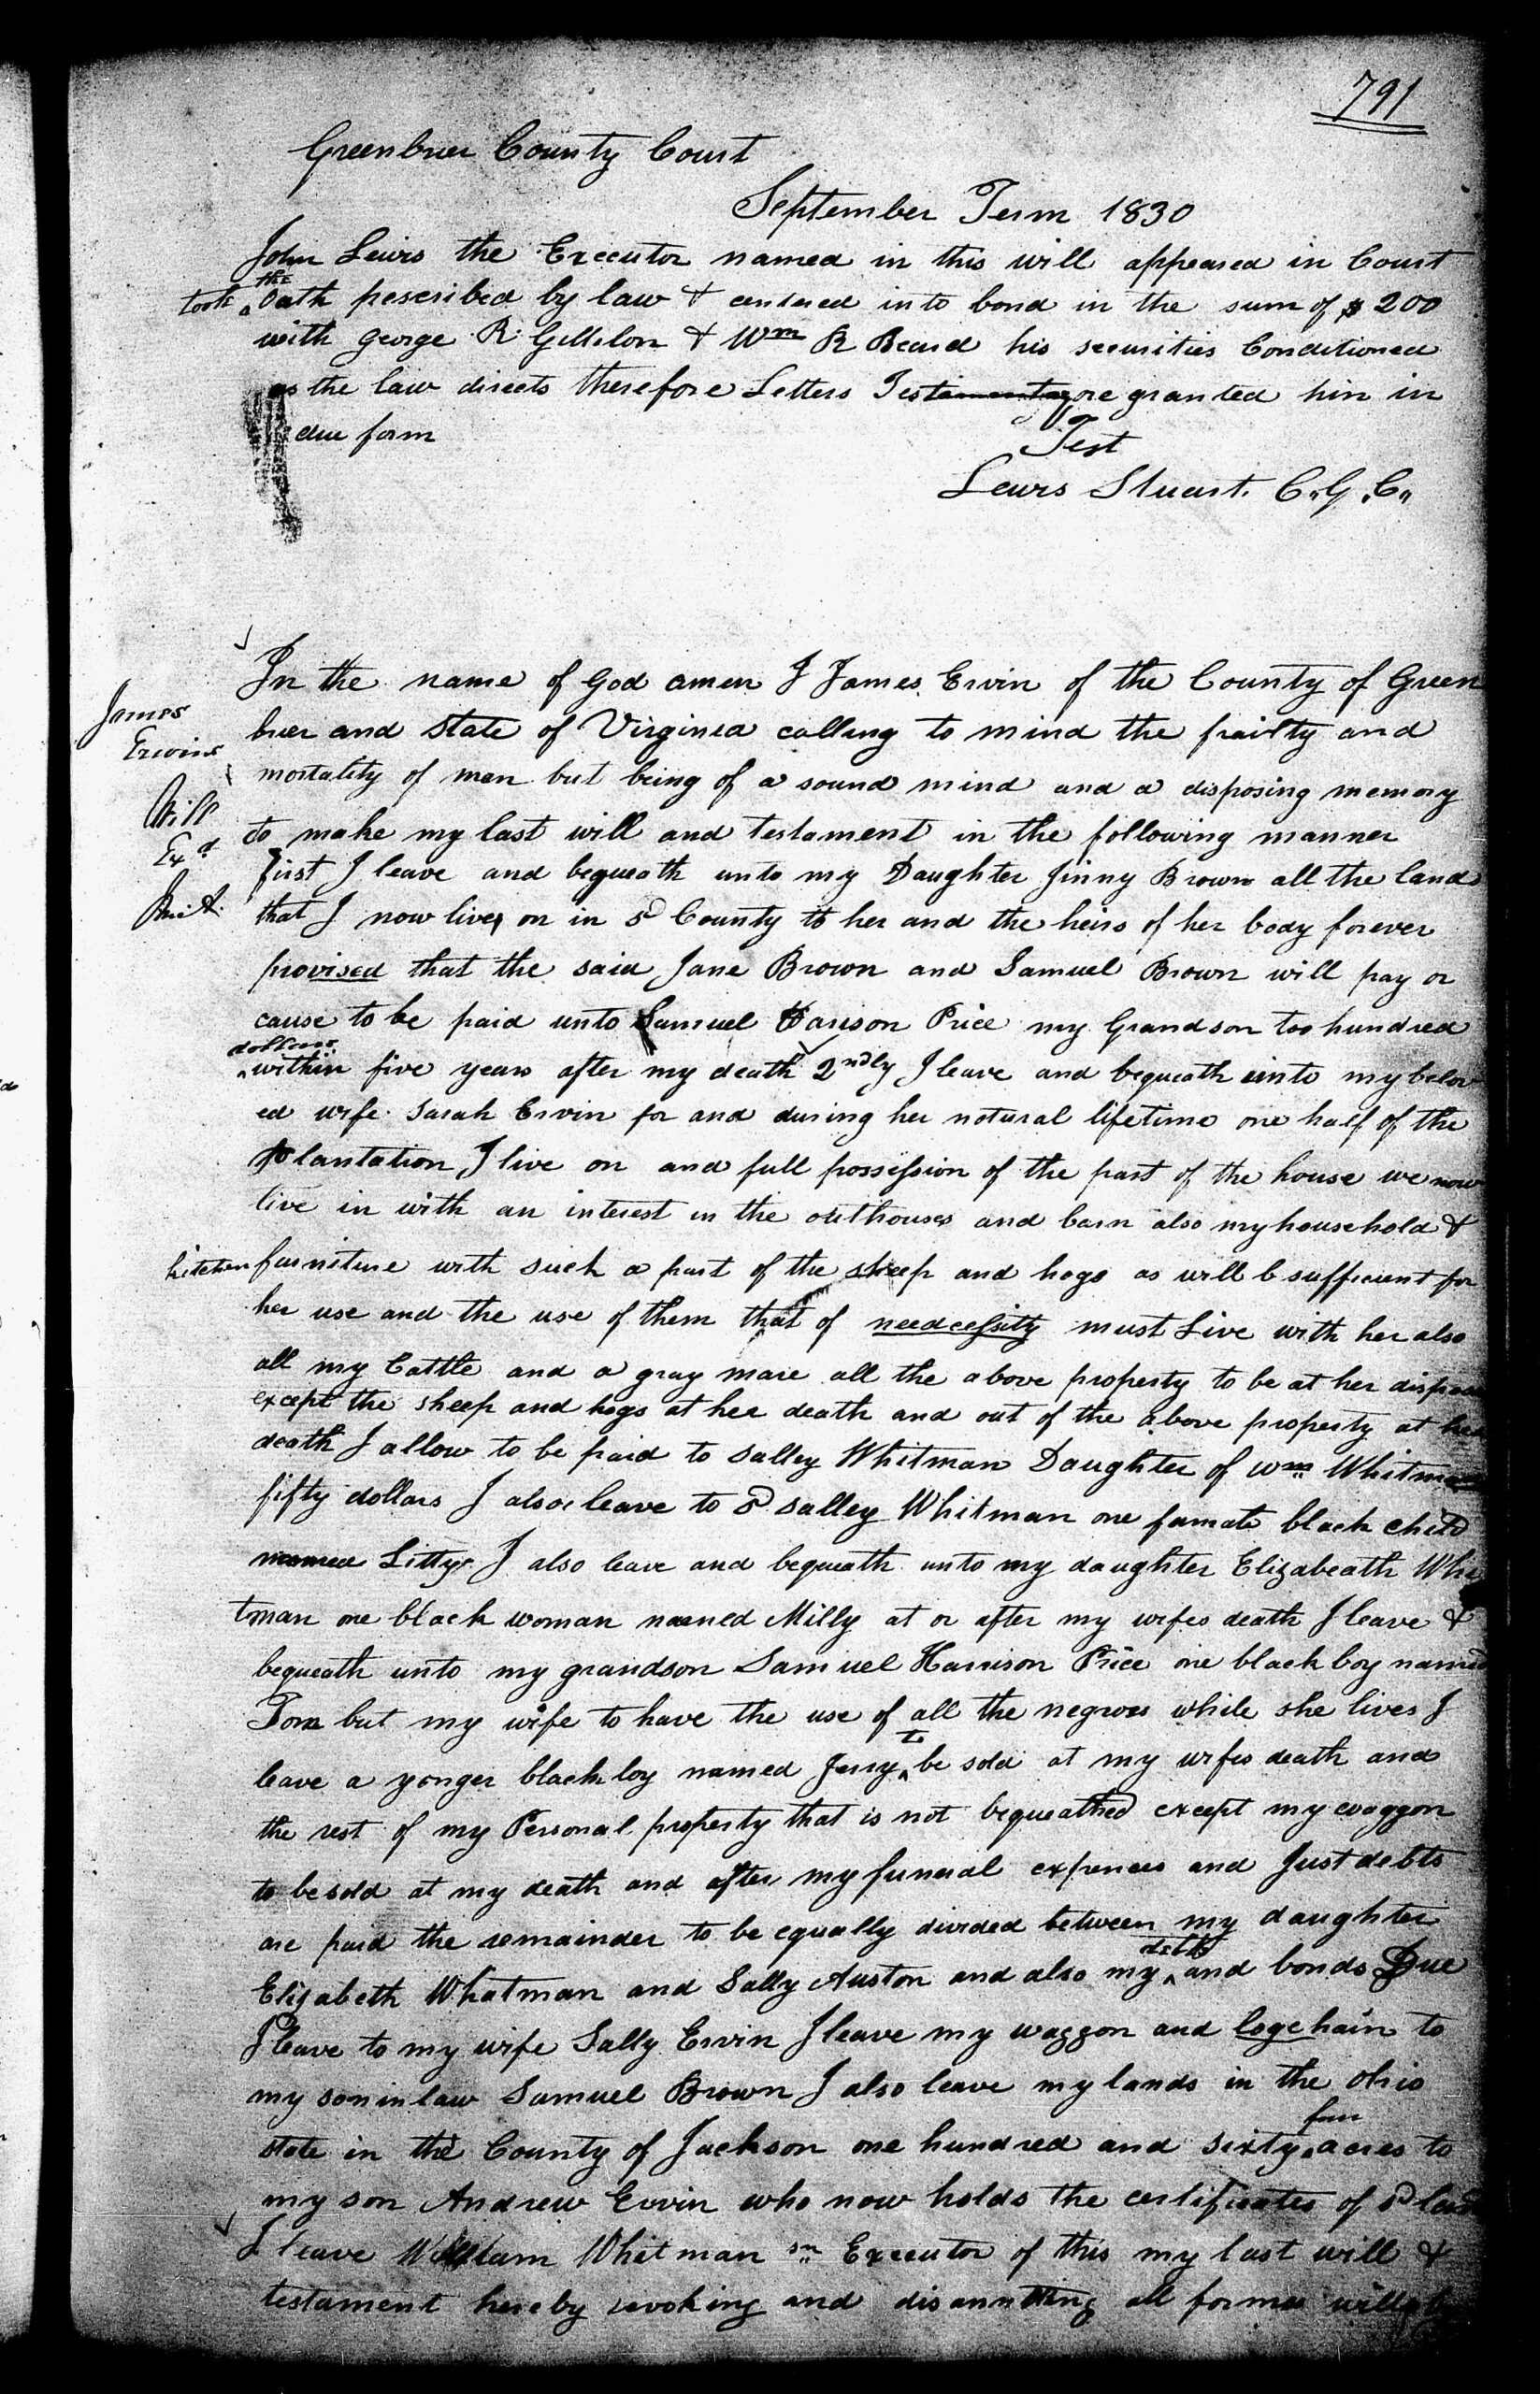 791
Greenbrier County Court
September Term 1830
John Lewis the Executor named in this will appeared in Court
took the Oath pescribed by law & entered into bond in the sum of $ 200
with George R. Gillilon & Wm R Beard his securities Conditioned
as the law directs therefore Letters Testamentary are granted him in
due form
Test
Lewis Stuart. C. G. C.
James
Erwins
Will
Exd
In the name of God amen I James Ervin of the County of Green
brier and State of Virginia calling to mind the frailty and
mortality of man but being of a sound mind and a disposing memory
to make my last will and testament in the following manner
first I leave and bequeath unto my Daughter Jinny Brown all the land
that I now live on in sd County to her and the heirs of her body forever
provised that the said Jane Brown and Samuel Brown will pay or
cause to be paid unto Samuel Harison Price my Grandson too hundred
dollars within five years after my death 2ndly I leave and bequeath unto my belov
ed wife Sarah Ervin for and during her natural lifetime one half of the
plantation I live on and full possession of the part of the house we now
live in with an interest in the outhouses and barn also my household &
kitchen furniture with such a part of the sheep and hogs as will b sufficient for
her use and the use of them that of needcessity must Live with her also
all my Cattle and a gray mare all the above property to be at her dispose
except the sheep and hogs at her death and out of the above property at her
death I allow to be paid to Salley Whitman Daughter of Wm Whitman
fifty dollars I also leave to sd Salley Whitman one famale black child
named Litty I also leave and bequeath unto my daughter Elizabeath Whi
tman one black woman named Milly at or after my wifes death I leave &
bequeath unto my grandson Samuel Harrison Price one black boy named
Tom but my wife to have the use of all the negroes while she lives I
leave a yonger black boy named Jerry to be sold at my wifes death and
the rest of my Personal property that is not bequeathed except my waggon
to be sold at my death and after my funeral expences and Just debts
are paid the remainder to be equally divided between my daughter
Elizabeth Whatman and Sally Auston and also my debts and bonds Due
I leave to my wife Sally Ervin I leave my waggon and logchain to
my son in law Samuel Brown I also leave my lands in the Ohio
state in the County of Jackson one hundred and sixty four acres to
my son Andrew Ervin who now holds the certificates of sd land
I leave William Whitman sr Executor of this my last will &
testament hereby revoking and disannulling all former wills